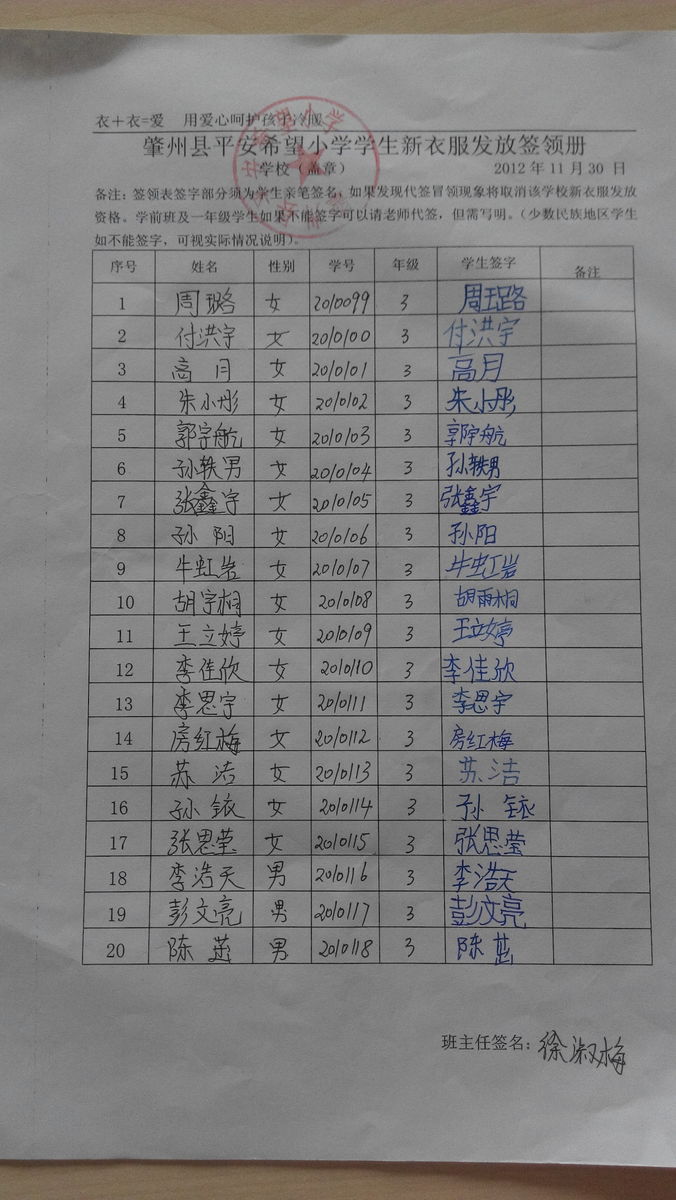 衣+衣=爱 用爱心呵护孩子冷暖
肇州县平安希望小学学生新衣服发放签领册
学校（盖章） 2012年11月30日
备注：签领表签字部分须为学生亲笔签名，如果发现代签冒领现象将取消该学校新衣服发放
资格。学前班及一年级学生如果不能签字可以请老师代签，但需写明。（少数民族地区学生
如不能签字，可视实际情况说明）。
序号 姓名 性别 学号 年级 学生签字 备注
1 周璐 女 2010099 3 周璐
2 付洪宇 女 2010100 3 付洪宇
3 高月 女 2010101 3 高月
4 朱小彤 女 2010102 3 朱小彤
5 郭宇航 女 2010103 3 郭宇航
6 孙轶男 女 2010104 3 孙轶男
7 张鑫宇 女 2010105 3 张鑫宇
8 孙阳 女 2010106 3 孙阳
9 牛虹岩 女 2010107 3 牛虹岩
10 胡宇桐 女 2010108 3 胡雨桐
11 王立婷 女 2010109 3 王立婷
12 李佳欣 女 2010110 3 李佳欣
13 李思宇 女 2010111 3 李思宇
14 房红梅 女 2010112 3 房红梅
15 苏洁 女 2010113 3 苏洁
16 孙铱 女 2010114 3 孙铱
17 张思莹 女 2010115 3 张思莹
18 李浩天 男 2010116 3 李浩天
19 彭文亮 男 2010117 3 彭文亮
20 陈 男 2010118 3 陈
班主任签名：徐淑梅